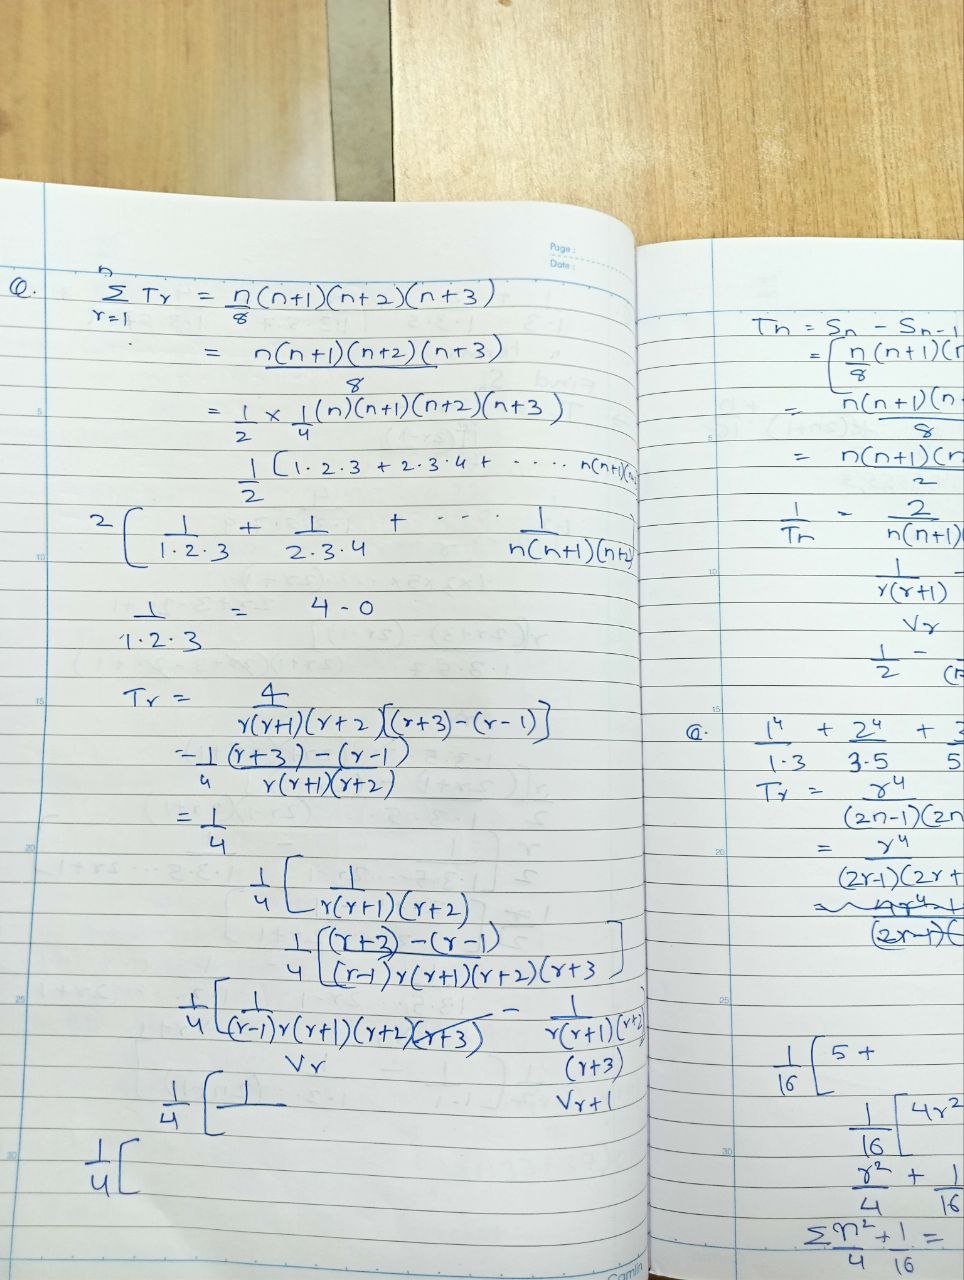 Page :
Date :
Q. n
Σ Tr = n/8 (n+1)(n+2)(n+3)
r=1
= n(n+1)(n+2)(n+3)/8
= 1/2 × 1/4 (n)(n+1)(n+2)(n+3)
1/2 [1·2·3 + 2·3·4 + .... n(n+1)(n
2 [ 1/1·2·3 + 1/2·3·4 + --- 1/n(n+1)(n+2)
1/1·2·3 = 4-0
Tr = 4/r(r+1)(r+2)[(r+3)-(r-1)]
= 1/4 (r+3)-(r-1)/r(r+1)(r+2)
= 1/4
1/4 [ 1/r(r+1)(r+2)
1/4 [ (r+3)-(r-1)/(r-1)r(r+1)(r+2)(r+3 ]
1/4 [ 1/(r-1)r(r+1)(r+2)(r+3) - 1/r(r+1)(r+2)
Vr (r+3)
Vr+1
1/4 [ 1
1/4 [
Camlin
Tn = Sn - Sn-1
= [ n/8 (n+1)(
= n(n+1)(n/8
= n(n+1)(n/2
1/Tn = 2/n(n+1)
1/r(r+1) -
Vr
1/2 -
Q. 1⁴/1·3 + 2⁴/3·5 + 3/5
Tr = r⁴/(2n-1)(2n
= r⁴/(2r-1)(2r+
1/16 [ 5 +
1/16 [ 4r²
r²/4 + 1/16
Σn²/4 + 1/16 =